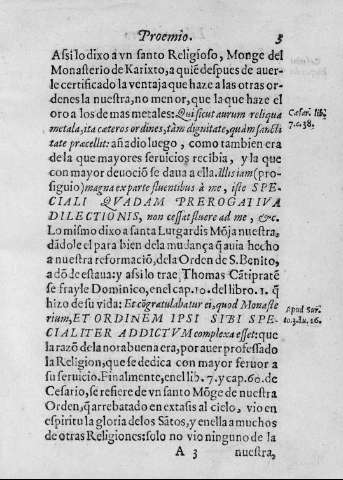 Proemio. 3
Assi lo dixo a vn santo Religioso, Monge del
Monasterio de Karixto, a quiẽ despues de auer-
le certificado la ventaja que haze a las otras or-
denes la nuestra, no menor, que la que haze el
oro a los de mas metales: Qui sicut aurum reliqua
metala, ita cæteros ordines, tàm dignitate, quàm sancti
tate præcellit: añadio luego, como tambien era
de la que mayores seruicios recibia, y la que
con mayor deuociõ se daua a ella. Illis iam (pro-
siguio) magna ex parte fluentibus à me, iste SPE-
CIALI QVADAM PREROGATIVA
DILECTIONIS, non cessat fluere ad me, &c.
Lo mismo dixo a santa Lutgardis Mõja nuestra,
dãdole el para bien de la mudãça q̃ auia hecho
a nuestra reformaciõ, de la Orden de S. Benito,
a dõ de estaua: y assi lo trae Thomas Cãtipratẽ
se frayle Dominico, en el cap. 10. del libro. 1. q̃
hizo de su vida: Et cõgratulabatur ei, quod Monaste
rium, ET ORDINEM IPSI SIBI SPE-
CIALITER ADDICTVM complexa esset: que
la razõ de la nora buena era, por auer professado
la Religion, que se dedica con mayor feruor a
su seruicio. Finalmente, en el lib. 7. y cap. 60. de
Cesario, se refiere de vn santo Mõge de nuestra
Orden, q̃ arrebatado en extasis al cielo, vio en
espiritu la gloria de los Sãtos, y en ella a muchos
de otras Religiones: solo no vio ninguno de la
A 3 nuestra,
Cæsar. lib.
7. c. 38.
Apud Sur.
to. 3. Iu. 16.